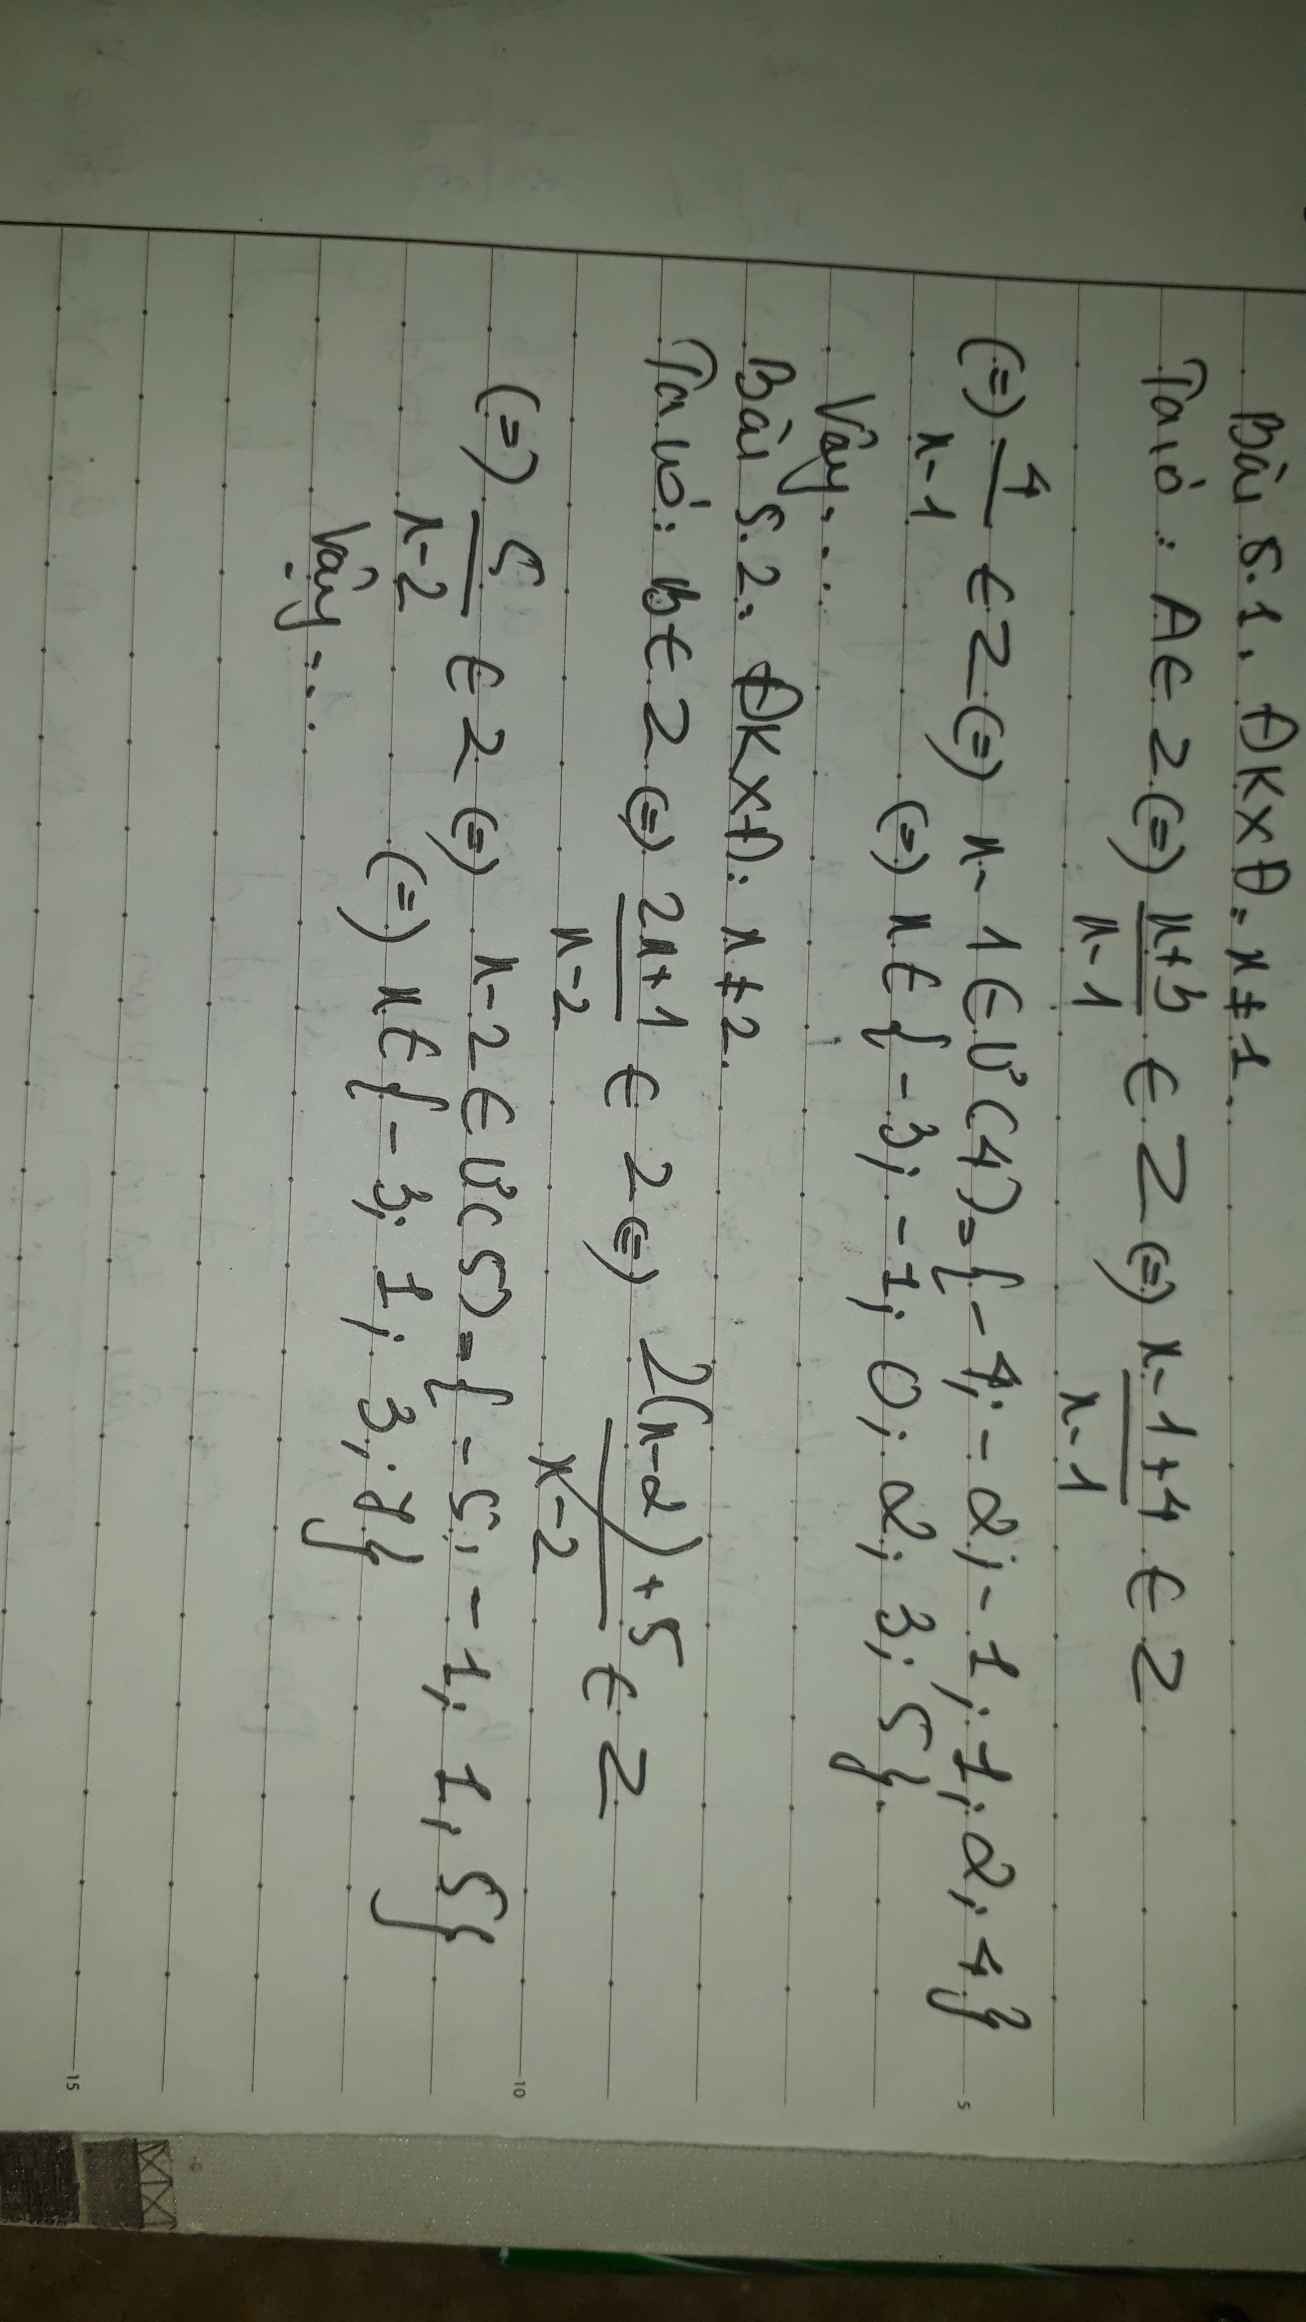 Bài 5.1. ĐKXĐ: x ≠ 1.
Ta có: A ∈ Z (=) x+3/x-1 ∈ Z (=) x-1+4/x-1 ∈ Z
(=) 4/x-1 ∈ Z (=) x-1 ∈ Ư(4) = {-4; -2; -1; 1; 2; 4}
(=) x ∈ {-3; -1; 0; 2; 3; 5}.
Vậy...
Bài 5.2. ĐKXĐ: x ≠ 2.
Ta có: B ∈ Z (=) 2x+1/x-2 ∈ Z (=) 2(x-2)+5/x-2 ∈ Z
(=) 5/x-2 ∈ Z (=) x-2 ∈ Ư(5) = {-5; -1; 1; 5}
(=) x ∈ {-3; 1; 3; 7}
Vậy...
5
10
15